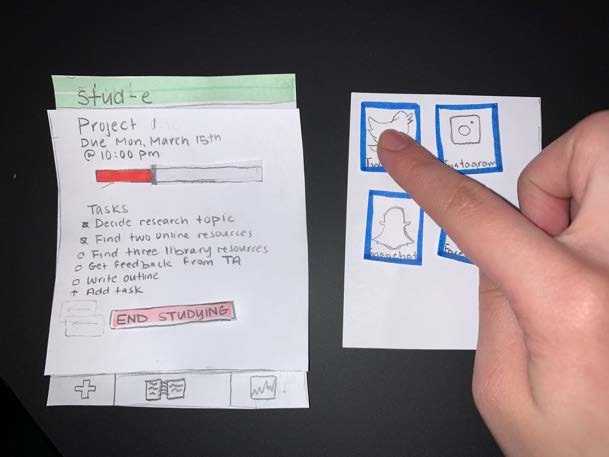 Stud-e
Project 1
Due Mon, March 15th
@ 10:00 pm
Tasks
Decide research topic
Find two online resources
Find three library resources
Get feedback from TA
Write outline
+ Add task
END STUDYING
Instagram
Snapchat